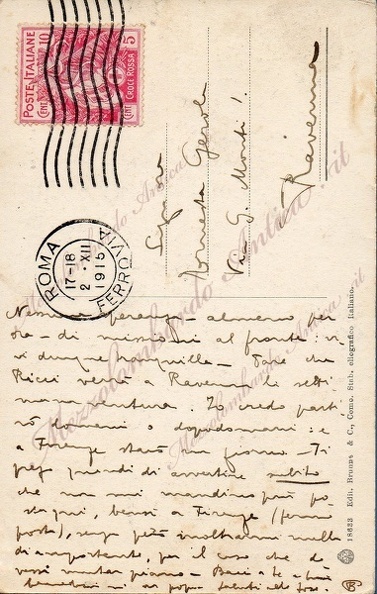 POSTE ITALIANE
CENT. 10
CENT. 5
CROCE ROSSA
ROMA
17-18
2 · XII
1915
FERROVIA
Signora
Gerola
Via G. Monti 1
Ravenna
Nessuna speranza - almeno per
ora - di missioni al fronte: vi
vi dunque tranquilla - Pare che
Ricci verrà a Ravenna la setti
mana ventura. Io credo parti
rò domani o dopodomani: e
a Firenze starò un giorno - Ti
prego quindi di avvertire subito
che non mi mandino più po
sta qui, bensì a Firenze (fermo
posta), senza però inoltrarmi nulla
di importante, per il caso che do
vessi mutar piano - Baci a te e
18623 Ediz. Brunner & C., Como. Stab. eliografico Italiano.
Mezzolombardo Antica.it
Mezzolombardo Antica.it
Mezzolombardo Antica.it